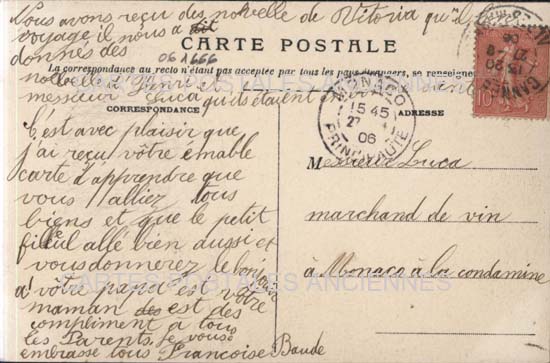 Nous avons reçu des nouvelle de Vitoria qu'il
voyage, il nous a dit
donnés des
CARTE POSTALE
06 A666
La correspondance au recto n'étant pas acceptée par tous les pays étrangers, se renseigner
messieur Luca qu'ils étaient en
CORRESPONDANCE
ADRESSE
C'est avec plaisir que
j'ai reçu vôtre émable
carte d'apprendre que
vous alliez tous
biens et que le petit
filleul allé bien aussi et
vous donnerez le bonjour
a vôtre papa est votre
maman des est des
compliment a tous
les Parents, je vous
embrasse tous Françoise Baude
Messieur Luca
marchand de vin
à Monaco à la condamine
MONACO
15 45
27
06
PRINCIPAUTÉ
CANNES
13 20
27
06
10
CARTES POSTALES ANCIENNES
CARTES POSTALES ANCIENNES